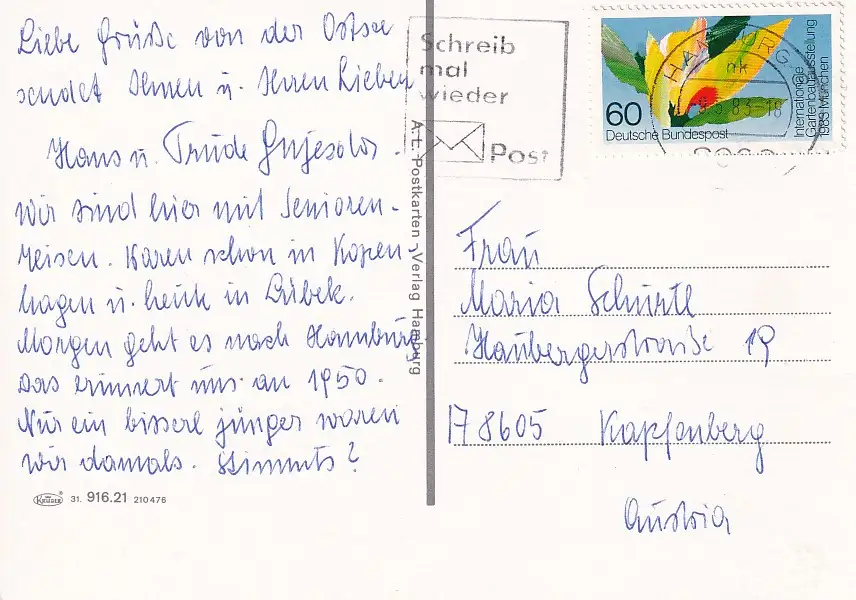 Liebe Grüße von der Ostsee
sendet Ihnen u. Ihren Lieben
Hans u. Trude
Wir sind hier mit Senioren-
reisen. Waren schon in Kopen-
hagen u. heute in Lübek.
Morgen geht es nach Hamburg
Das erinnert uns an 1950.
Nur ein bisserl jünger waren
wir damals. Stimmts?
KRÜGER 31. 916.21 210476
A.L. Postkarten-Verlag Hamburg
Schreib
mal
wieder
Post
60
Deutsche Bundespost
Internationale
Gartenbauausstellung
1983 München
Frau
Maria Schürtl
Haubergerstraße 19
8605 Kapfenberg
Austria